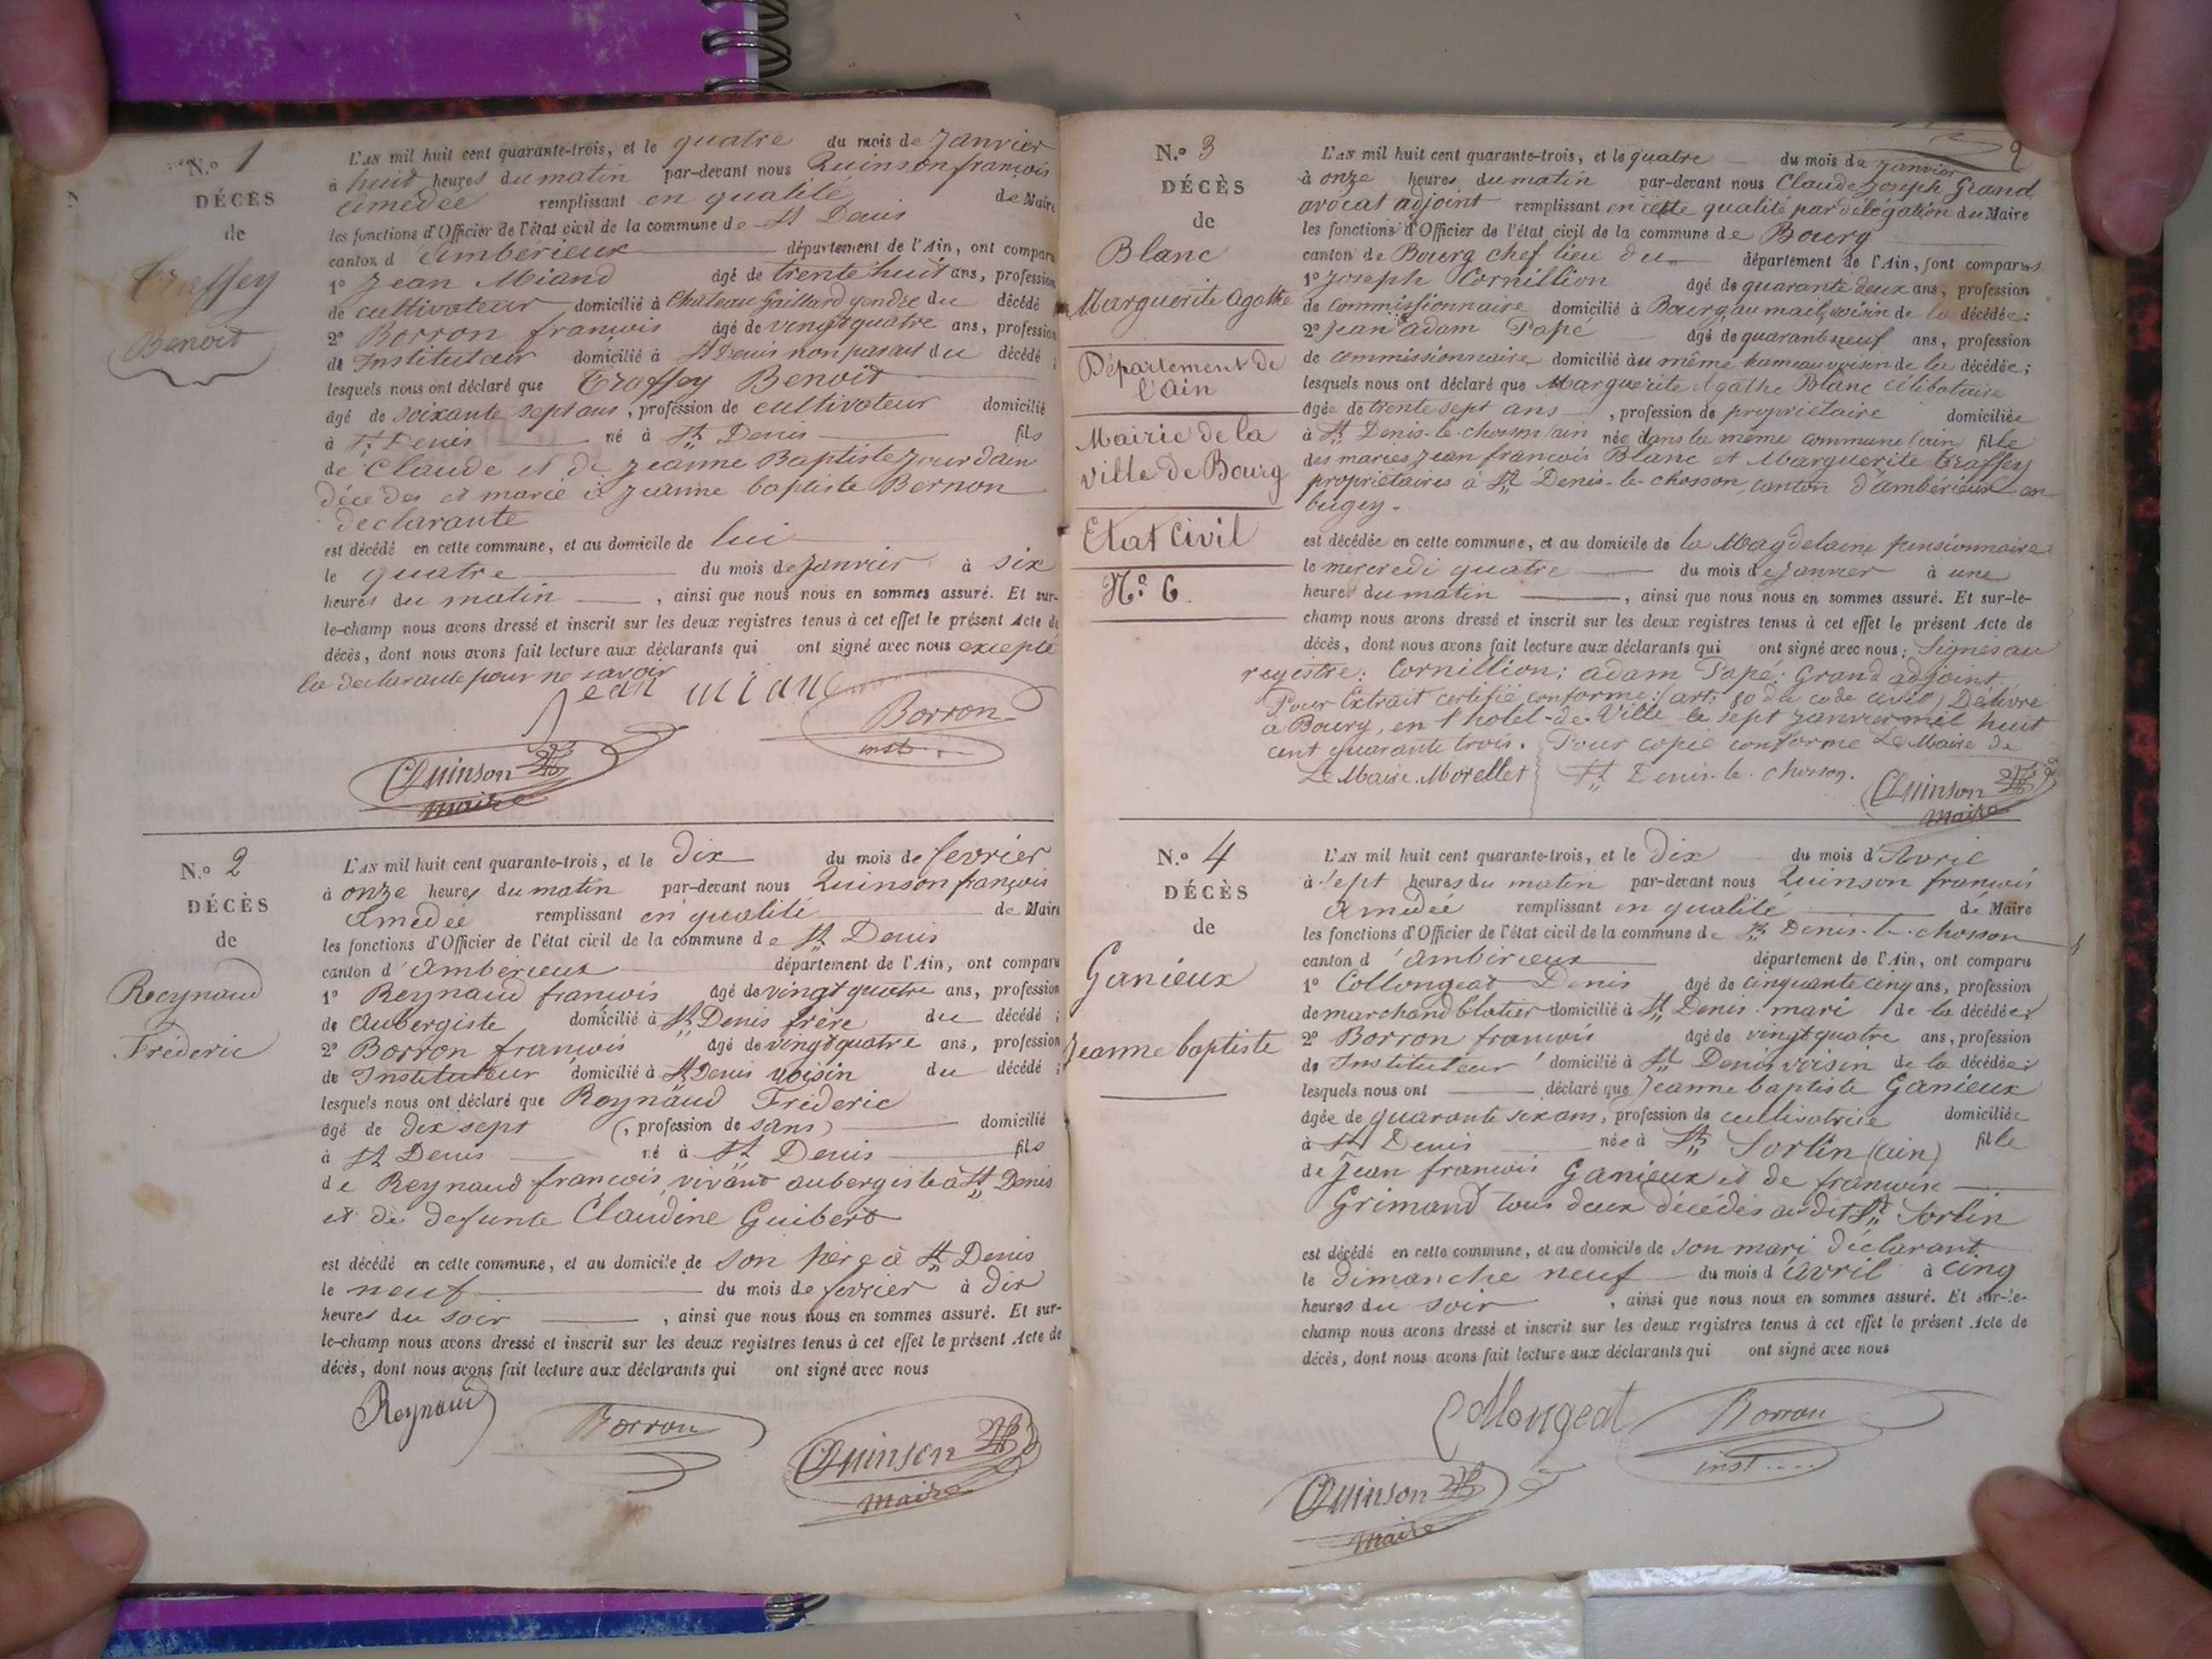 N.o 1
DÉCÈS
de
Traffey
Benoit
L'AN mil huit cent quarante-trois, et le quatre du mois de Janvier
à huit heures du matin par-devant nous Quinson françois
Amédée remplissant en qualité de Maire
les fonctions d'Officier de l'état civil de la commune de St Denis
canton d'Ambérieux département de l'Ain, ont comparu
1o Jean Miand âgé de trente huit ans, profession
de cultivateur domicilié à Chateau Gaillard gendre du décédé
2o Borron françois âgé de vingt quatre ans, profession
de Instituteur domicilié à St Denis non parent du décédé ;
lesquels nous ont déclaré que Traffey Benoit
âgé de soixante sept ans, profession de cultivateur domicilié
à St Denis né à St Denis fils
de Claude et de Jeanne Baptiste Jourdain
décédés et marié à Jeanne baptiste Bernon
declarante
est décédé en cette commune, et au domicile de lui
le quatre du mois de Janvier à six
heures du matin, ainsi que nous nous en sommes assuré. Et sur-
le-champ nous avons dressé et inscrit sur les deux registres tenus à cet effet le présent Acte de
décès, dont nous avons fait lecture aux déclarants qui ont signé avec nous excepté
la declarante pour ne savoir
jean miand
Borron
inst..
Quinson
maire
N.o 2
DÉCÈS
de
Reynaud
Fréderic
L'AN mil huit cent quarante-trois, et le dix du mois de fevrier
à onze heures du matin par-devant nous Quinson françois
Amédée remplissant en qualité de Maire
les fonctions d'Officier de l'état civil de la commune de St Denis
canton d'Ambérieux département de l'Ain, ont comparu
1o Reynaud francois âgé de vingt quatre ans, profession
de Aubergiste domicilié à St Denis frère du décédé ;
2o Borron francois âgé de vingt quatre ans, profession
de Instituteur domicilié à St Denis voisin du décédé ;
lesquels nous ont déclaré que Reynaud Fréderic
âgé de dix sept (, profession de sans) domicilié
à St Denis né à St Denis fils
de Reynaud francois, vivant aubergiste à St Denis
et de defunte Claudine Guibert
est décédé en cette commune, et au domicile de son père à St Denis
le neuf du mois de fevrier à dix
heures du soir, ainsi que nous nous en sommes assuré. Et sur-
le-champ nous avons dressé et inscrit sur les deux registres tenus à cet effet le présent Acte de
décès, dont nous avons fait lecture aux déclarants qui ont signé avec nous
Reynaud
Borron
Quinson
maire
2
N.o 3
DÉCÈS
de
Blanc
Marguerite Agathe
Département de
l'Ain
Mairie de la
ville de Bourg
Etat Civil
No. 6.
L'AN mil huit cent quarante-trois, et le quatre du mois de janvier
à onze heures du matin par-devant nous Claude Joseph Grand
avocat adjoint remplissant en cette qualité par délégation du Maire
les fonctions d'Officier de l'état civil de la commune de Bourg
canton de Bourg chef lieu du département de l'Ain, sont comparus
1o Joseph Cornillion âgé de quarante deux ans, profession
de commissionnaire domicilié à Bourg, au mail, voisin de la décédée :
2o Jean adam Papé âgé de quarante neuf ans, profession
de commissionnaire domicilié au même hameau voisin de la décédée ;
lesquels nous ont déclaré que Marguerite Agathe Blanc célibataire
âgée de trente sept ans, profession de propriétaire domiciliée
à St Denis-le-chosson (ain née dans la même commune (ain) fille
des mariés Jean francois Blanc et Marguerite Traffey
propriétaires à St Denis-le-chosson, canton d'ambérieux en
bugey.
est décédée en cette commune, et au domicile de la Magdelaine pensionnaire
le mercredi quatre du mois de janvier à une
heure du matin, ainsi que nous nous en sommes assuré. Et sur-le-
champ nous avons dressé et inscrit sur les deux registres tenus à cet effet le présent Acte de
décès, dont nous avons fait lecture aux déclarants qui ont signé avec nous : Signés au
registre : Cornillion ; adam Papé ; Grand adjoint.
Pour Extrait certifié conforme : (art. 80 du code civil) Délivré
à Bourg, en l'hotel-de-Ville le sept janvier mil huit
cent quarante trois. Pour copie conforme Le Maire de
Le Maire. Morellet St Denis-le-chosson.
Quinson
maire
N.o 4
DÉCÈS
de
Ganieux
Jeanne baptiste
L'AN mil huit cent quarante-trois, et le dix du mois d'Avril
à sept heures du matin par-devant nous Quinson francois
Amédée remplissant en qualité de Maire
les fonctions d'Officier de l'état civil de la commune de St Denis-le-chosson
canton d'Ambérieux département de l'Ain, ont comparu
1o Collongeat Denis âgé de cinquante cinq ans, profession
de marchand blatier domicilié à St Denis mari de la décédée ;
2o Borron francois âgé de vingt quatre ans, profession
de Instituteur domicilié à St Denis voisin de la décédée ;
lesquels nous ont déclaré que Jeanne baptiste Ganieux
âgée de quarante six ans, profession de cultivatrice domiciliée
à St Denis née à St Sorlin (ain) fille
de Jean francois Ganieux et de francoise
Grimand tous deux décédés audit St Sorlin
est décédé en cette commune, et au domicile de son mari déclarant.
le dimanche neuf du mois d'avril à cinq
heures du soir, ainsi que nous nous en sommes assuré. Et sur-le-
champ nous avons dressé et inscrit sur les deux registres tenus à cet effet le présent Acte de
décès, dont nous avons fait lecture aux déclarants qui ont signé avec nous
Collongeat
Borron
inst....
Quinson
maire